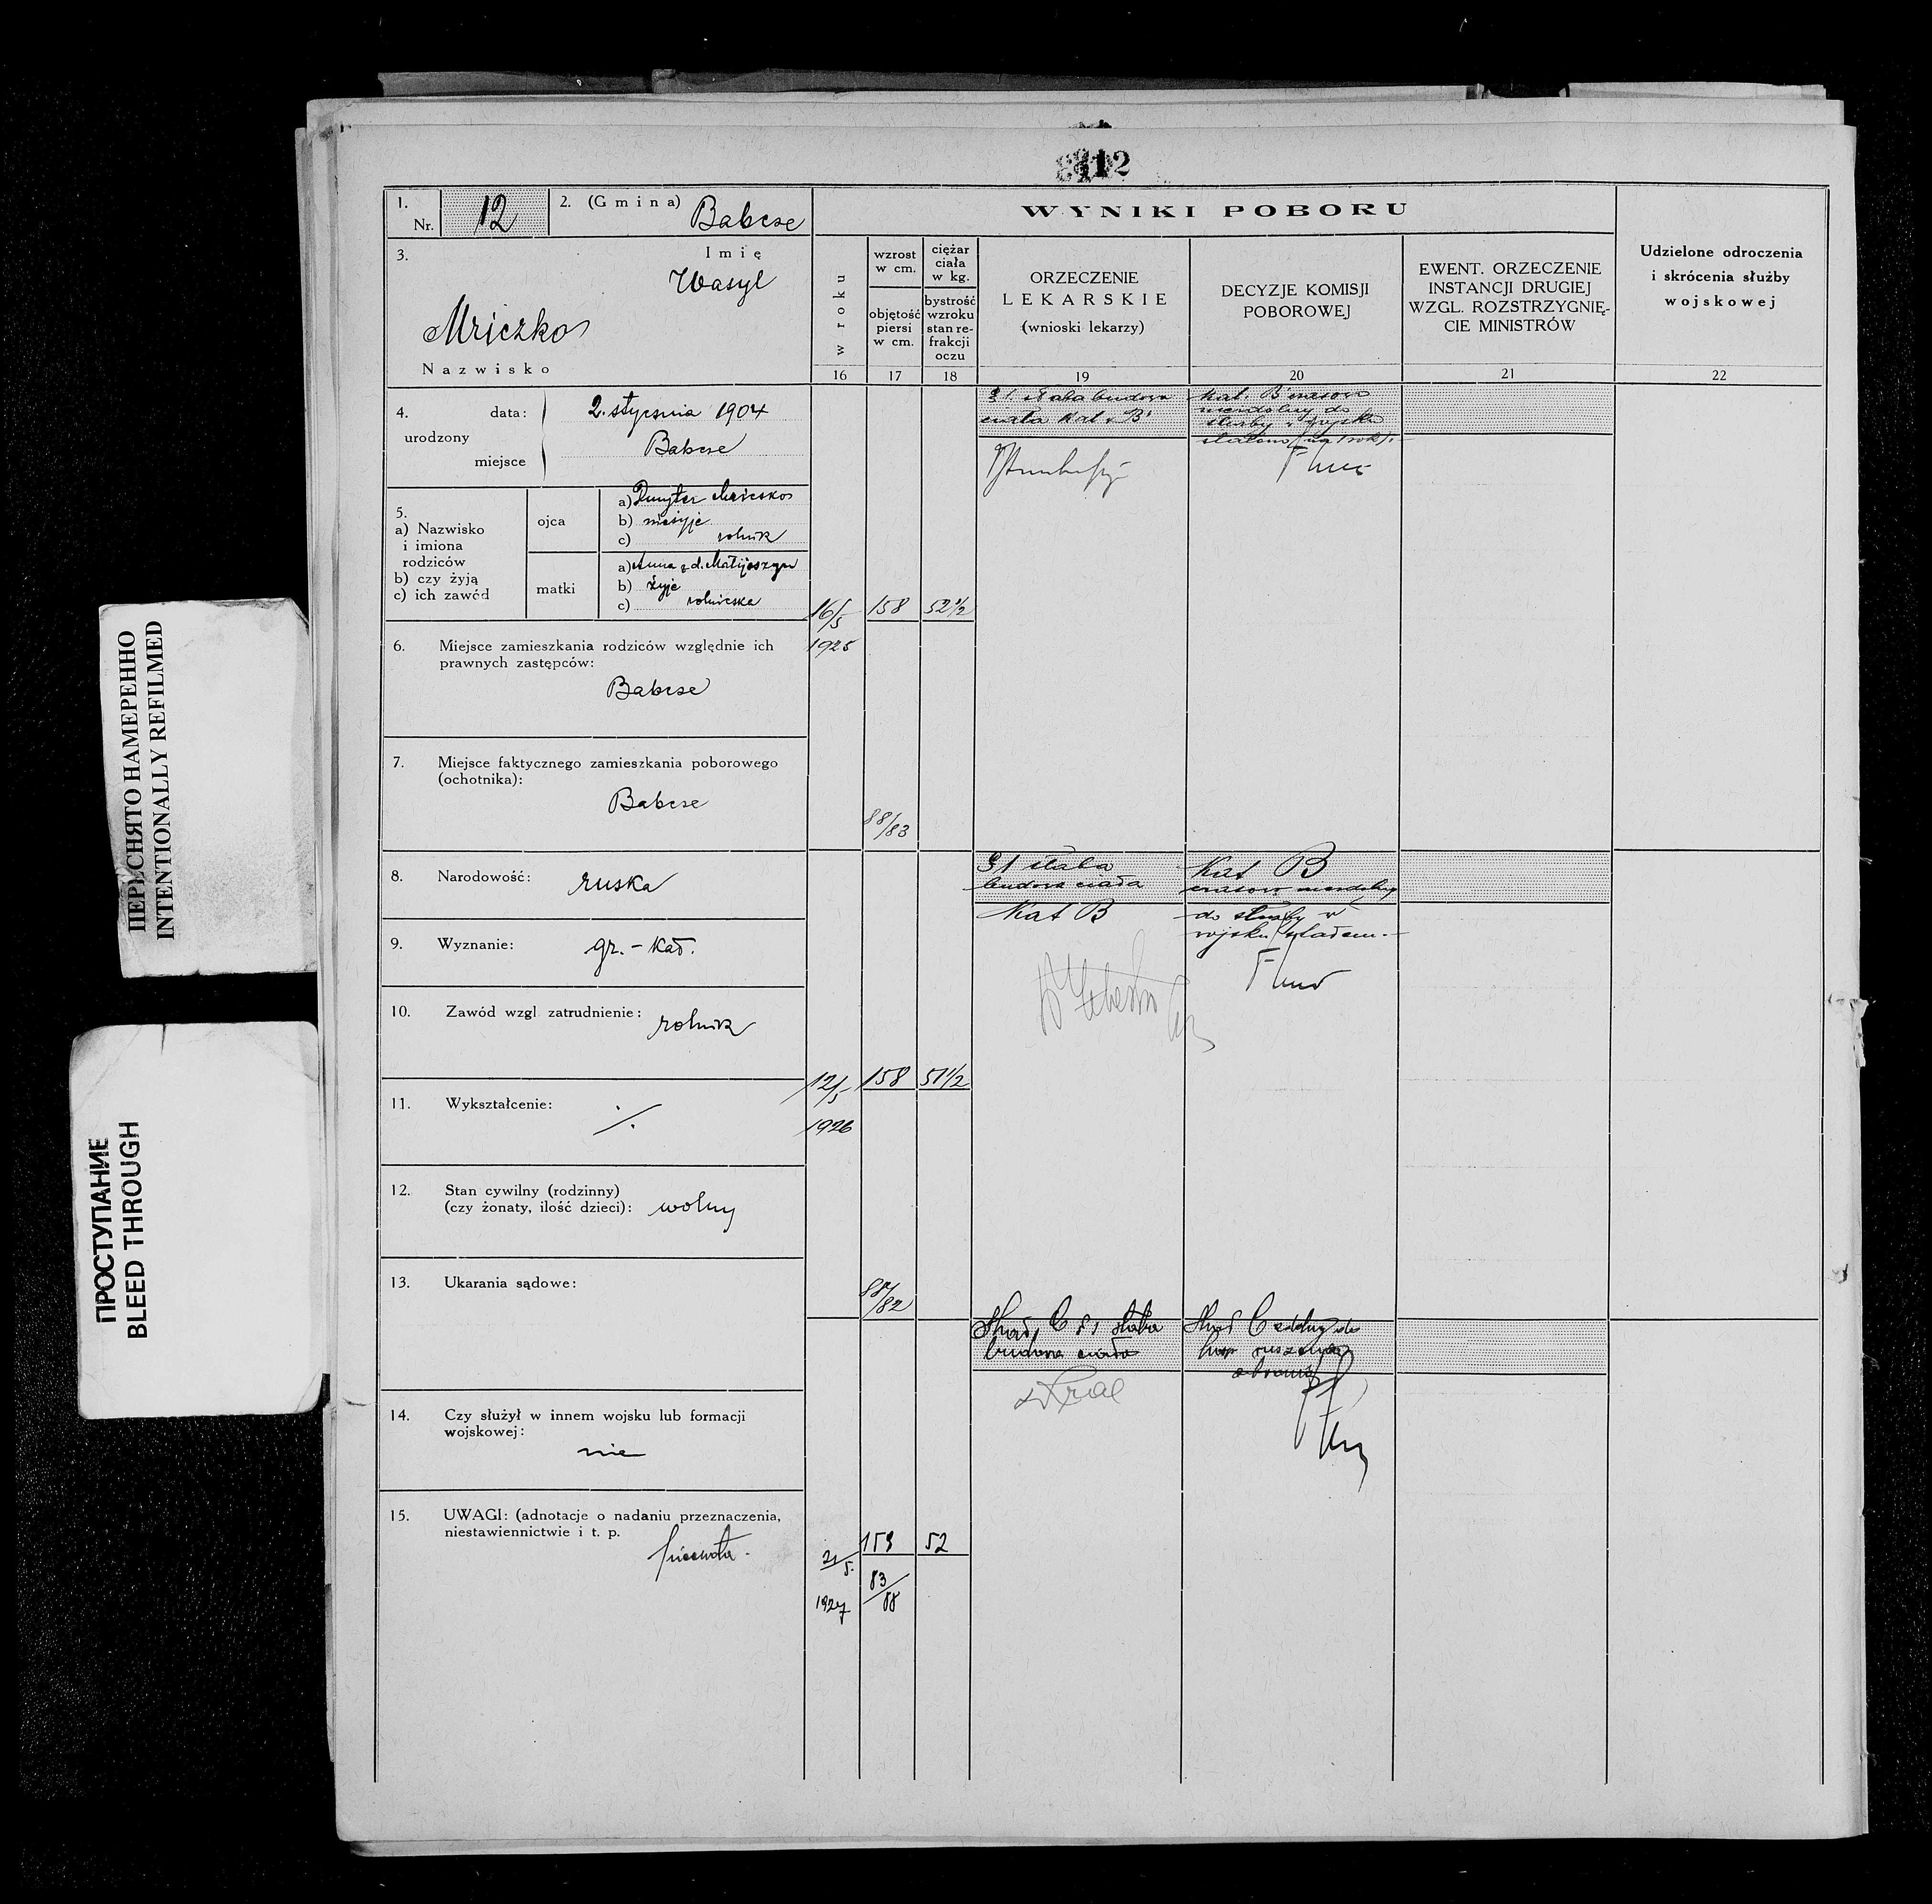 12
1.
Nr. 12
2. (Gmina) Babcze
3.
Imię
Wasyl
Mriczko
Nazwisko
4.
urodzony
data: 2. stycznia 1904
miejsce Babcze
5.
a) Nazwisko
i imiona
rodziców
b) czy żyją
c) ich zawód
ojca
a) Dmyter Mriczko
b) nieżyje
c) rolnik
matki
a) Anna z d. Matijeszyn
b) żyje
c) rolniczka
6. Miejsce zamieszkania rodziców względnie ich
prawnych zastępców:
Babcze
7. Miejsce faktycznego zamieszkania poborowego
(ochotnika):
Babcze
8. Narodowość: ruska
9. Wyznanie: gr.-kat.
10. Zawód wzgl zatrudnienie: rolnik
11. Wykształcenie: ./.
12. Stan cywilny (rodzinny)
(czy żonaty, ilość dzieci): wolny
13. Ukarania sądowe:
14. Czy służył w innem wojsku lub formacji
wojskowej:
nie
15. UWAGI: (adnotacje o nadaniu przeznaczenia,
niestawiennictwie i t. p.
piechota.
WYNIKI POBORU
w roku
16
wzrost
w cm.
objętość
piersi
w cm.
17
ciężar
ciała
w kg.
bystrość
wzroku
stan re-
frakcji
oczu
18
ORZECZENIE
LEKARSKIE
(wnioski lekarzy)
19
DECYZJE KOMISJI
POBOROWEJ
20
EWENT. ORZECZENIE
INSTANCJI DRUGIEJ
WZGL. ROZSTRZYGNIĘ-
CIE MINISTRÓW
21
Udzielone odroczenia
i skrócenia służby
wojskowej
22
16/5
1925
158
52 1/2
88/83
słaba budowa
ciała Kat. B
Kat. B czasowo
niezdolny do
służby w wojsku
stałem (na 1 rok).
12/5
1926
158
51 1/2
88/82
słaba
budowa ciała
Kat B
Kat B
czasowo niezdolny
do służby w
wojsku stałem.
21/5.
1927
159
52
83/88
C słaba
budowa ciała
C zdolny do
służby w pospol. ruszeniu
z bronią
ПЕРЕСНЯТО НАМЕРЕННО
INTENTIONALLY REFILMED
ПРОСТУПАНИЕ
BLEED THROUGH